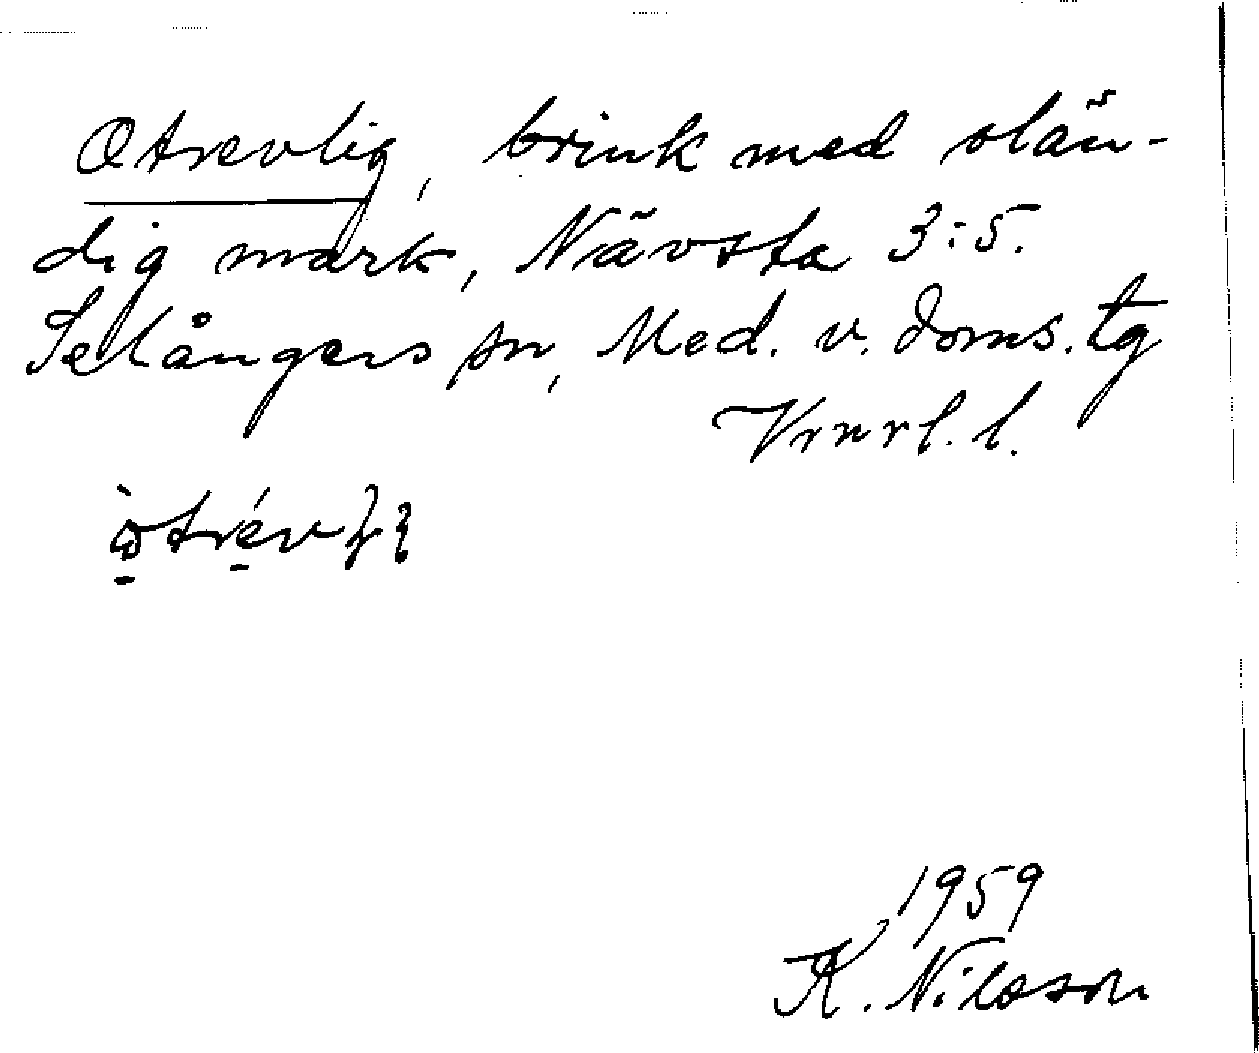 Otrevlig, brink med slän-
dig mark, Nävsta 3:5.
Selångers sn, Med. v. doms. tg
Vrnrl. l.
1959
K. Nilsson